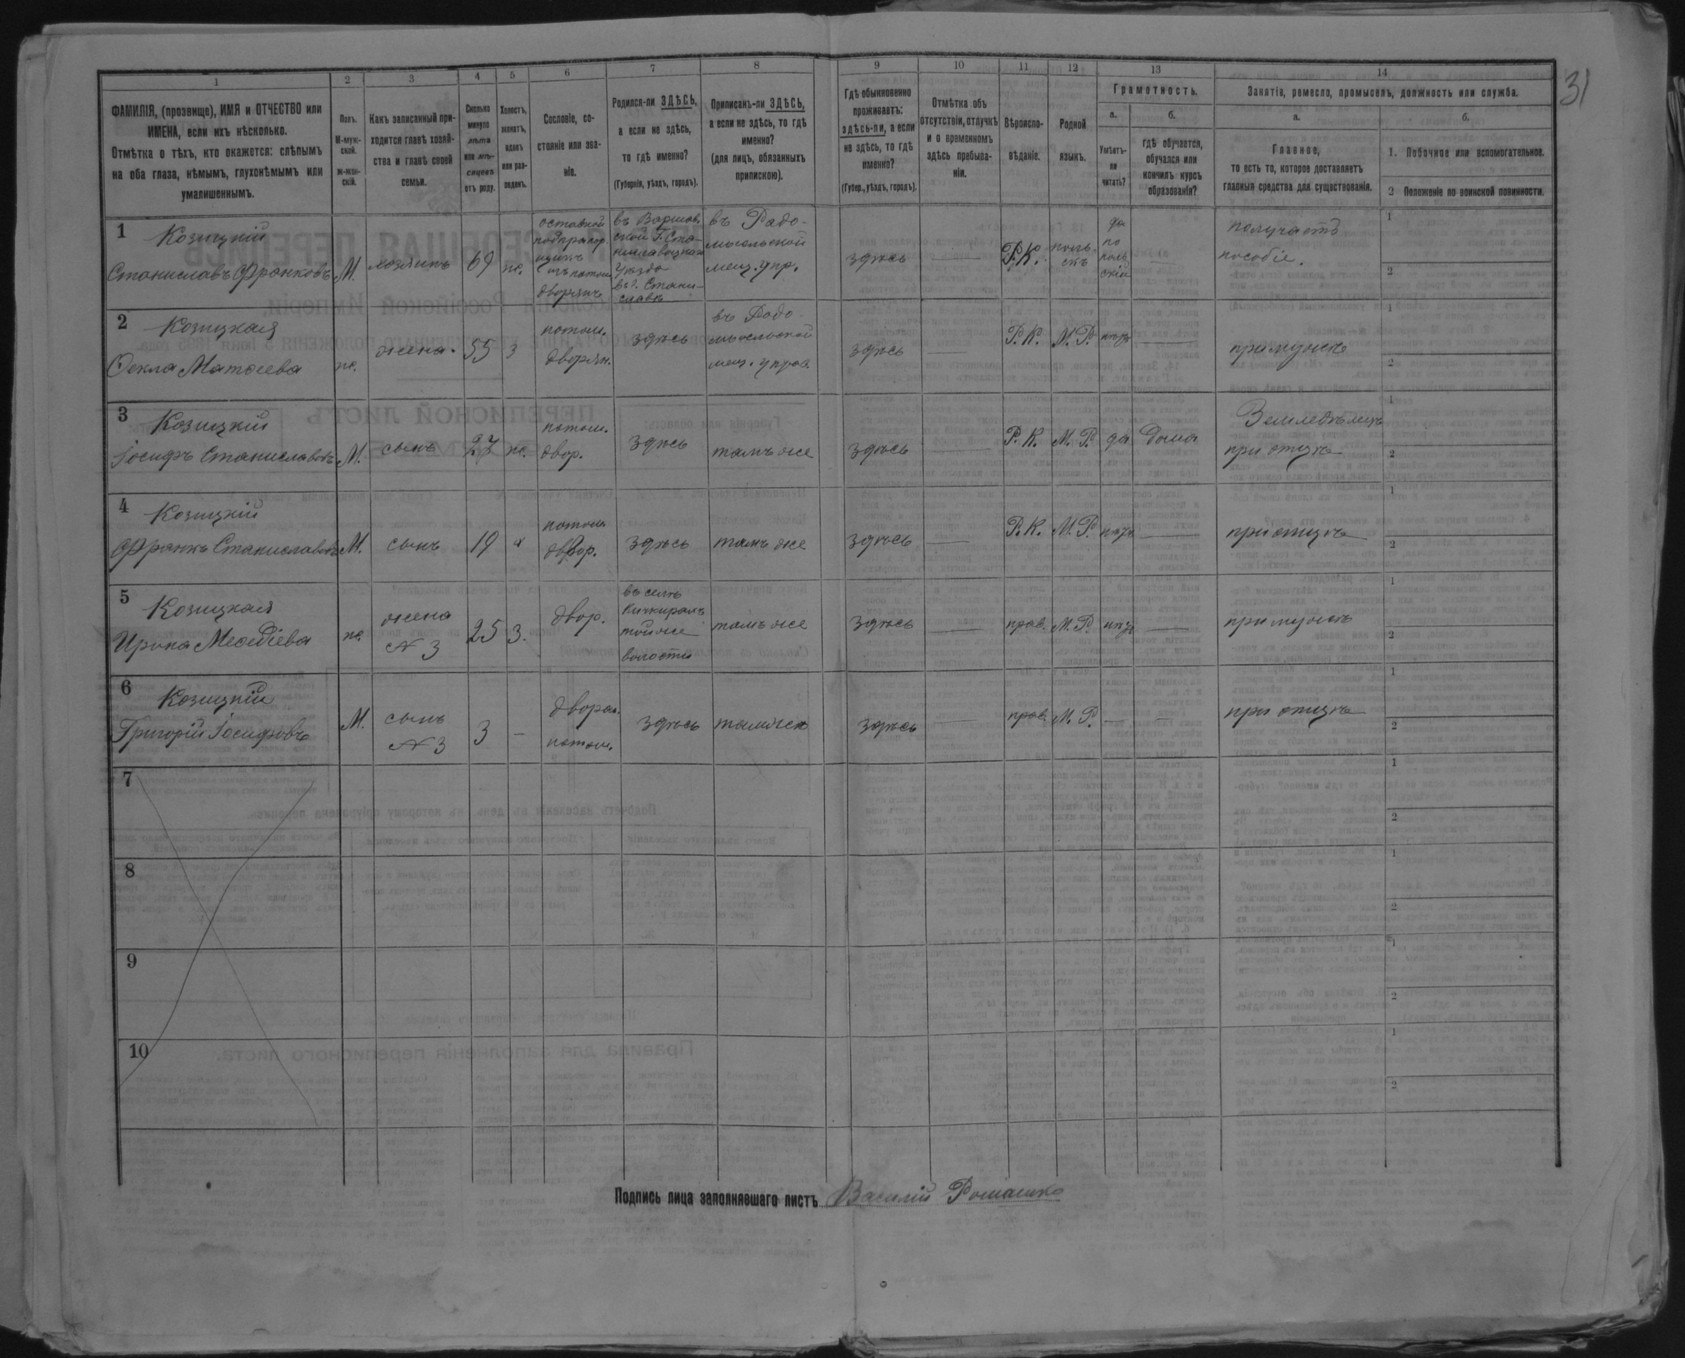 31
1 2 3 4 5 6 7 8 9 10 11 12 13 14
ФАМИЛІЯ, (прозвище), ИМЯ и ОТЧЕСТВО или
ИМЕНА, если ихъ нѣсколько.
Отмѣтка о тѣхъ, кто окажется: слѣпымъ
на оба глаза, нѣмымъ, глухонѣмымъ или
умалишеннымъ.
Полъ.
М-муж-
ской.
ж-жен-
скій.
Какъ записанный при-
ходится главѣ хозяй-
ства и главѣ своей
семьи.
Сколько
минуло
лѣтъ
или мѣ-
сяцевъ
отъ роду.
Холостъ,
женатъ,
вдовъ
или раз-
веденъ.
Сословіе, со-
стояніе или зва-
ніе.
Родился-ли ЗДѢСЬ,
а если не здѣсь,
то гдѣ именно?
(Губернія, уѣздъ, городъ).
Приписанъ-ли ЗДѢСЬ,
а если не здѣсь, то гдѣ
именно?
(для лицъ, обязанныхъ
припискою).
Гдѣ обыкновенно
проживаетъ:
здѣсь-ли, а если
не здѣсь, то гдѣ
именно?
(Губер., уѣздъ, городъ).
Отмѣтка объ
отсутствіи, отлучкѣ
и о временномъ
здѣсь пребыва-
ніи.
Вѣроиспо-
вѣданіе.
Родной
языкъ.
Грамотность.
а.
Умѣетъ-
ли
читать?
б.
гдѣ обучается,
обучался или
кончилъ курсъ
образованія?
Занятія, ремесло, промыселъ, должность или служба.
а.
Главное,
то есть то, которое доставляетъ
главныя средства для существованія.
б.
1. Побочное или вспомогательное.
2 Положеніе по воинской повинности.
1
Козицкій
Станиславъ Франковъ
М.
хозяинъ
69
ж.
отставной
подпрапор
щикъ
изъ потом.
дворянъ
въ Варшав
ской Г. Ста-
ниславоцкаго
уѣзда
въ г. Стани-
славѣ
въ Радо-
мысльской
мещ. упр.
здѣсь
Р.К.
поль-
скъ
да
по
поль
скіи
получаетъ
пособіе.
1
2
2
Козицкая
Ѳекла Матѳеева
ж.
жена.
55
з
потом.
дворян.
здѣсь
въ Радо-
мысльской
мещ. управ.
здѣсь
Р. К.
М. Р.
нѣтъ
при мужѣ
1
2
3
Козицкій
Іосифъ Станиславовъ
М.
сынъ
27
ж.
потом.
двор.
здѣсь
тамъ же
здѣсь
Р. К.
М. Р.
да
дома
Земледѣлецъ
при отцѣ
1
2
4
Козицкій
Франкъ Станиславовъ
М.
сынъ
19
х
потом
двор.
здѣсь
тамъ же
здѣсь
Р. К.
М. Р.
нѣтъ
при отцѣ
1
2
5
Козицкая
Ирина Меѳодіева
ж.
жена
№ 3
25
з.
двор.
въ селѣ
той же
волости
тамъ же
здѣсь
прав.
М. Р.
нѣтъ
при мужѣ
1
2
6
Козицкій
Григорій Іосифовъ
М.
сынъ
№ 3
3
дворян.
потом.
здѣсь
тамъ же
здѣсь
прав.
М. Р.
при отцѣ
1
2
7
1
2
8
1
2
9
1
2
10
1
2
Подпись лица заполнявшаго листъ Василій Ромашко